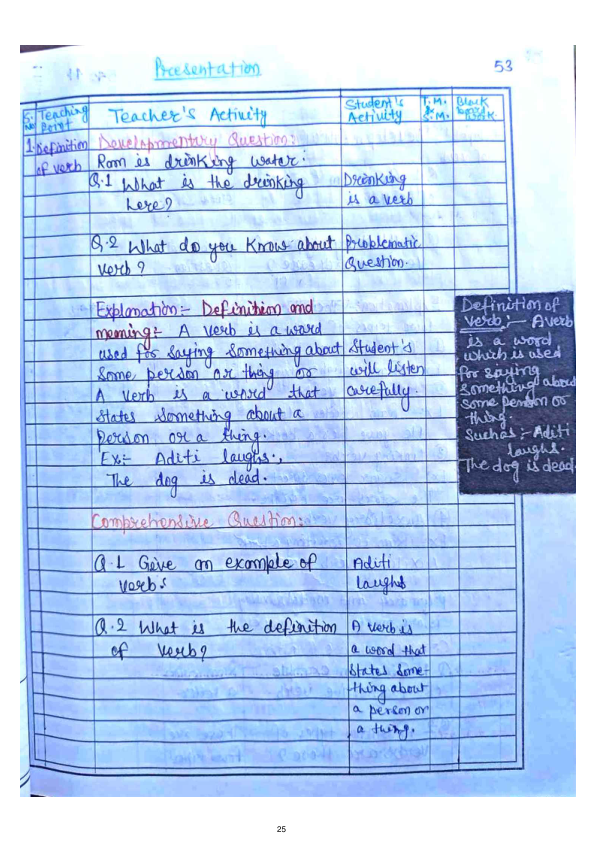 Presentation
53
S. No
Teaching Point
Teacher's Activity
Student's Activity
T.M. & S.M.
Black board work
1. Definition of verb
Developmentary Question:
Ram is drinking water.
Q.1 What is the drinking
here?
Drinking
is a verb
Q.2 What do you know about
verb?
Problematic
Question.
Explanation:- Definition and
meaning:- A verb is a word
used for saying something about
some person or thing or
A verb is a word that
states something about a
person or a thing.
Ex:- Aditi laughs.,
The dog is dead.
Student's
will listen
carefully.
Definition of
verb:- A verb
is a word
which is used
for saying
something about
some person or
thing
Such as:- Aditi
laughs.
The dog is dead.
Comprehensive Question:
Q.1 Give an example of
verbs
Aditi
laughs
Q.2 What is the definition
of verb?
A verb is
a word that
states some-
thing about
a person or
a thing.
25